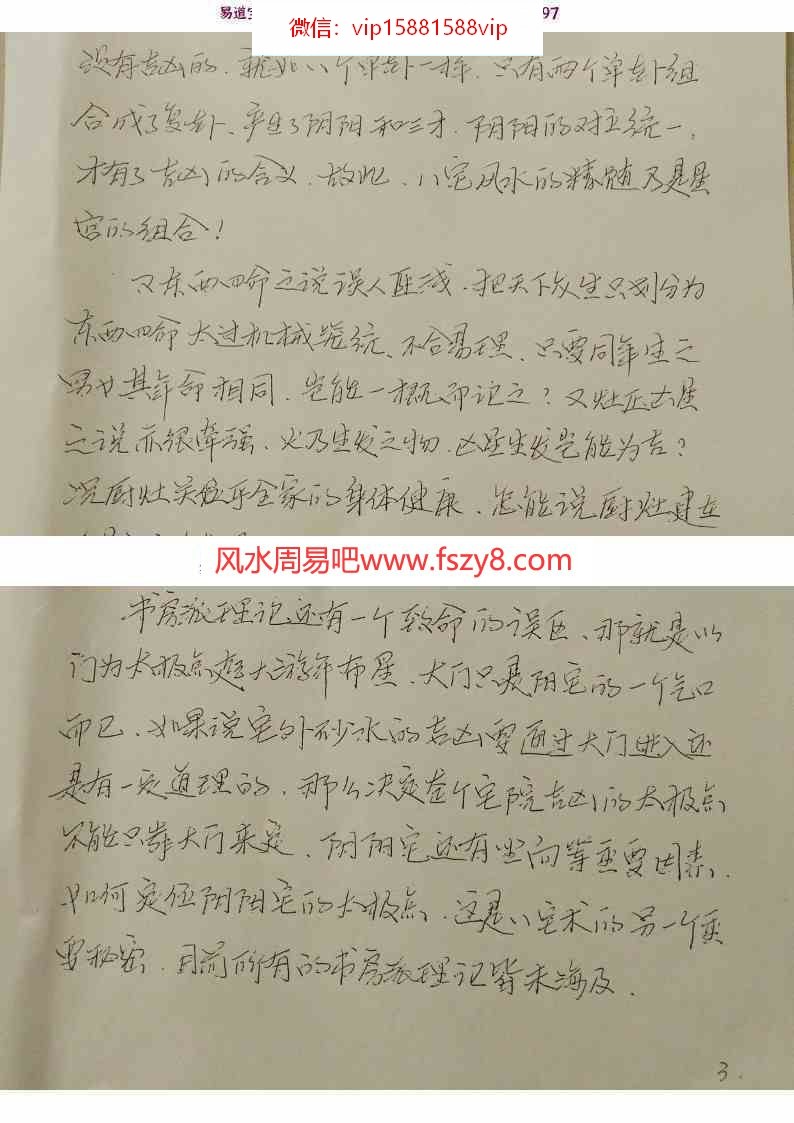 易道
97
微信：vip15881588vip
没有吉凶的．就如八个单卦一样．只有两个单卦组
合成了复卦、产生了阴阳和三才．阴阳的对立统一，
才有了吉凶的含义．故此．八宅风水的精髓乃是星
宫的组合！
又东西四命之说误人匪浅．把天下众生只划分为
东西四命太过机械笼统、不合易理．只要同年生之
男女其年命相同．岂能一概而论之？又灶压凶星
之说亦很牵强．火乃生发之物．凶星生发岂能为吉？
况厨灶关系乎全家的身体健康．怎能说厨灶建在
风水周易吧www.fszy8.com
书房派理论还有一个致命的误区、那就是以
门为太极点起大游年布星．大门只是阳宅的一个气口
而已．如果说宅外砂水的吉凶要通过大门进入还
是有一定道理的．那么决定整个宅院吉凶的太极点
不能只靠大门来定．阴阳宅还有坐向等重要因素．
如何定位阴阳宅的太极点．这是八宅术的另一个重
要秘密．目前所有的书房派理论皆未涉及．
3．